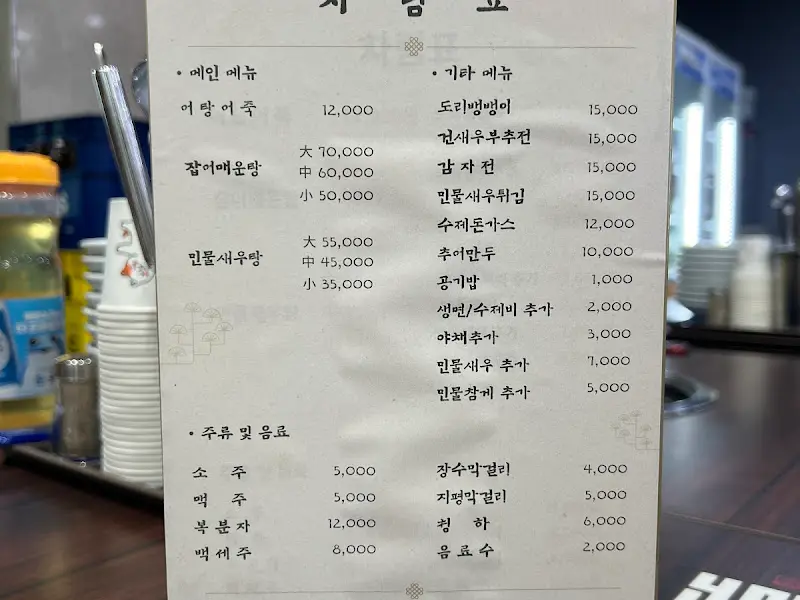 차 림 표
• 메인 메뉴
어 탕 어 죽 12,000
잡어매운탕 大 70,000
中 60,000
小 50,000
민물새우탕 大 55,000
中 45,000
小 35,000
• 기타 메뉴
도리뱅뱅이 15,000
건새우부추전 15,000
감 자 전 15,000
민물새우튀김 15,000
수제돈가스 12,000
추어만두 10,000
공기밥 1,000
생면/수제비 추가 2,000
야채추가 3,000
민물새우 추가 7,000
민물참게 추가 5,000
• 주류 및 음료
소 주 5,000
맥 주 5,000
복 분 자 12,000
백 세 주 8,000
장수막걸리 4,000
지평막걸리 5,000
청 하 6,000
음 료 수 2,000